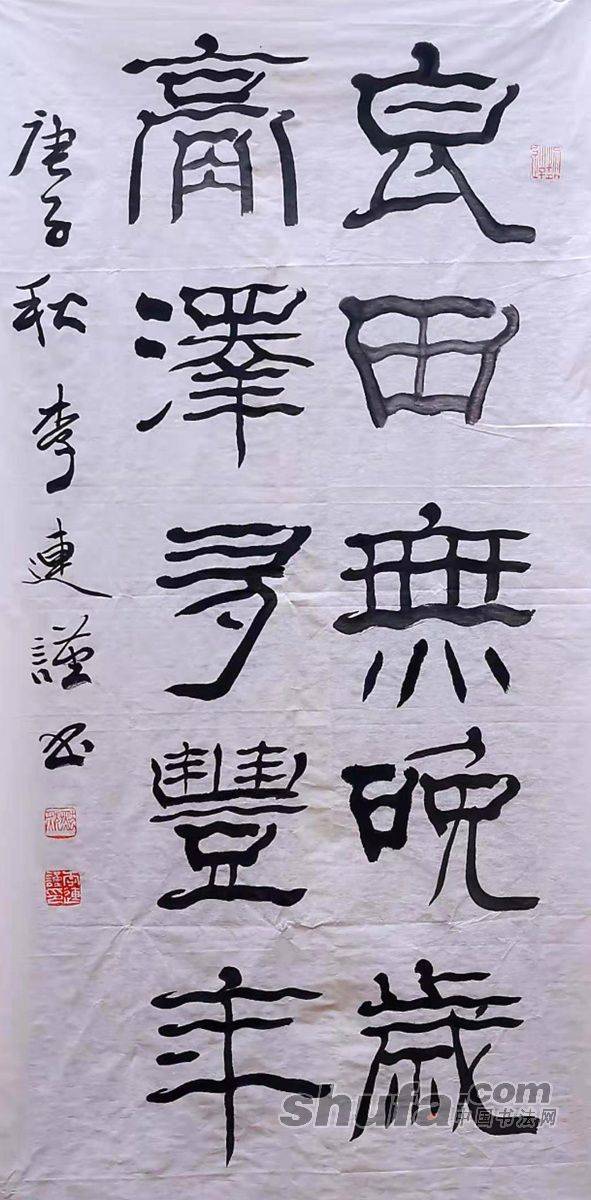 良田無晚歲
膏澤多豐年
庚子秋李連謹书
shufa.com
中国书法网